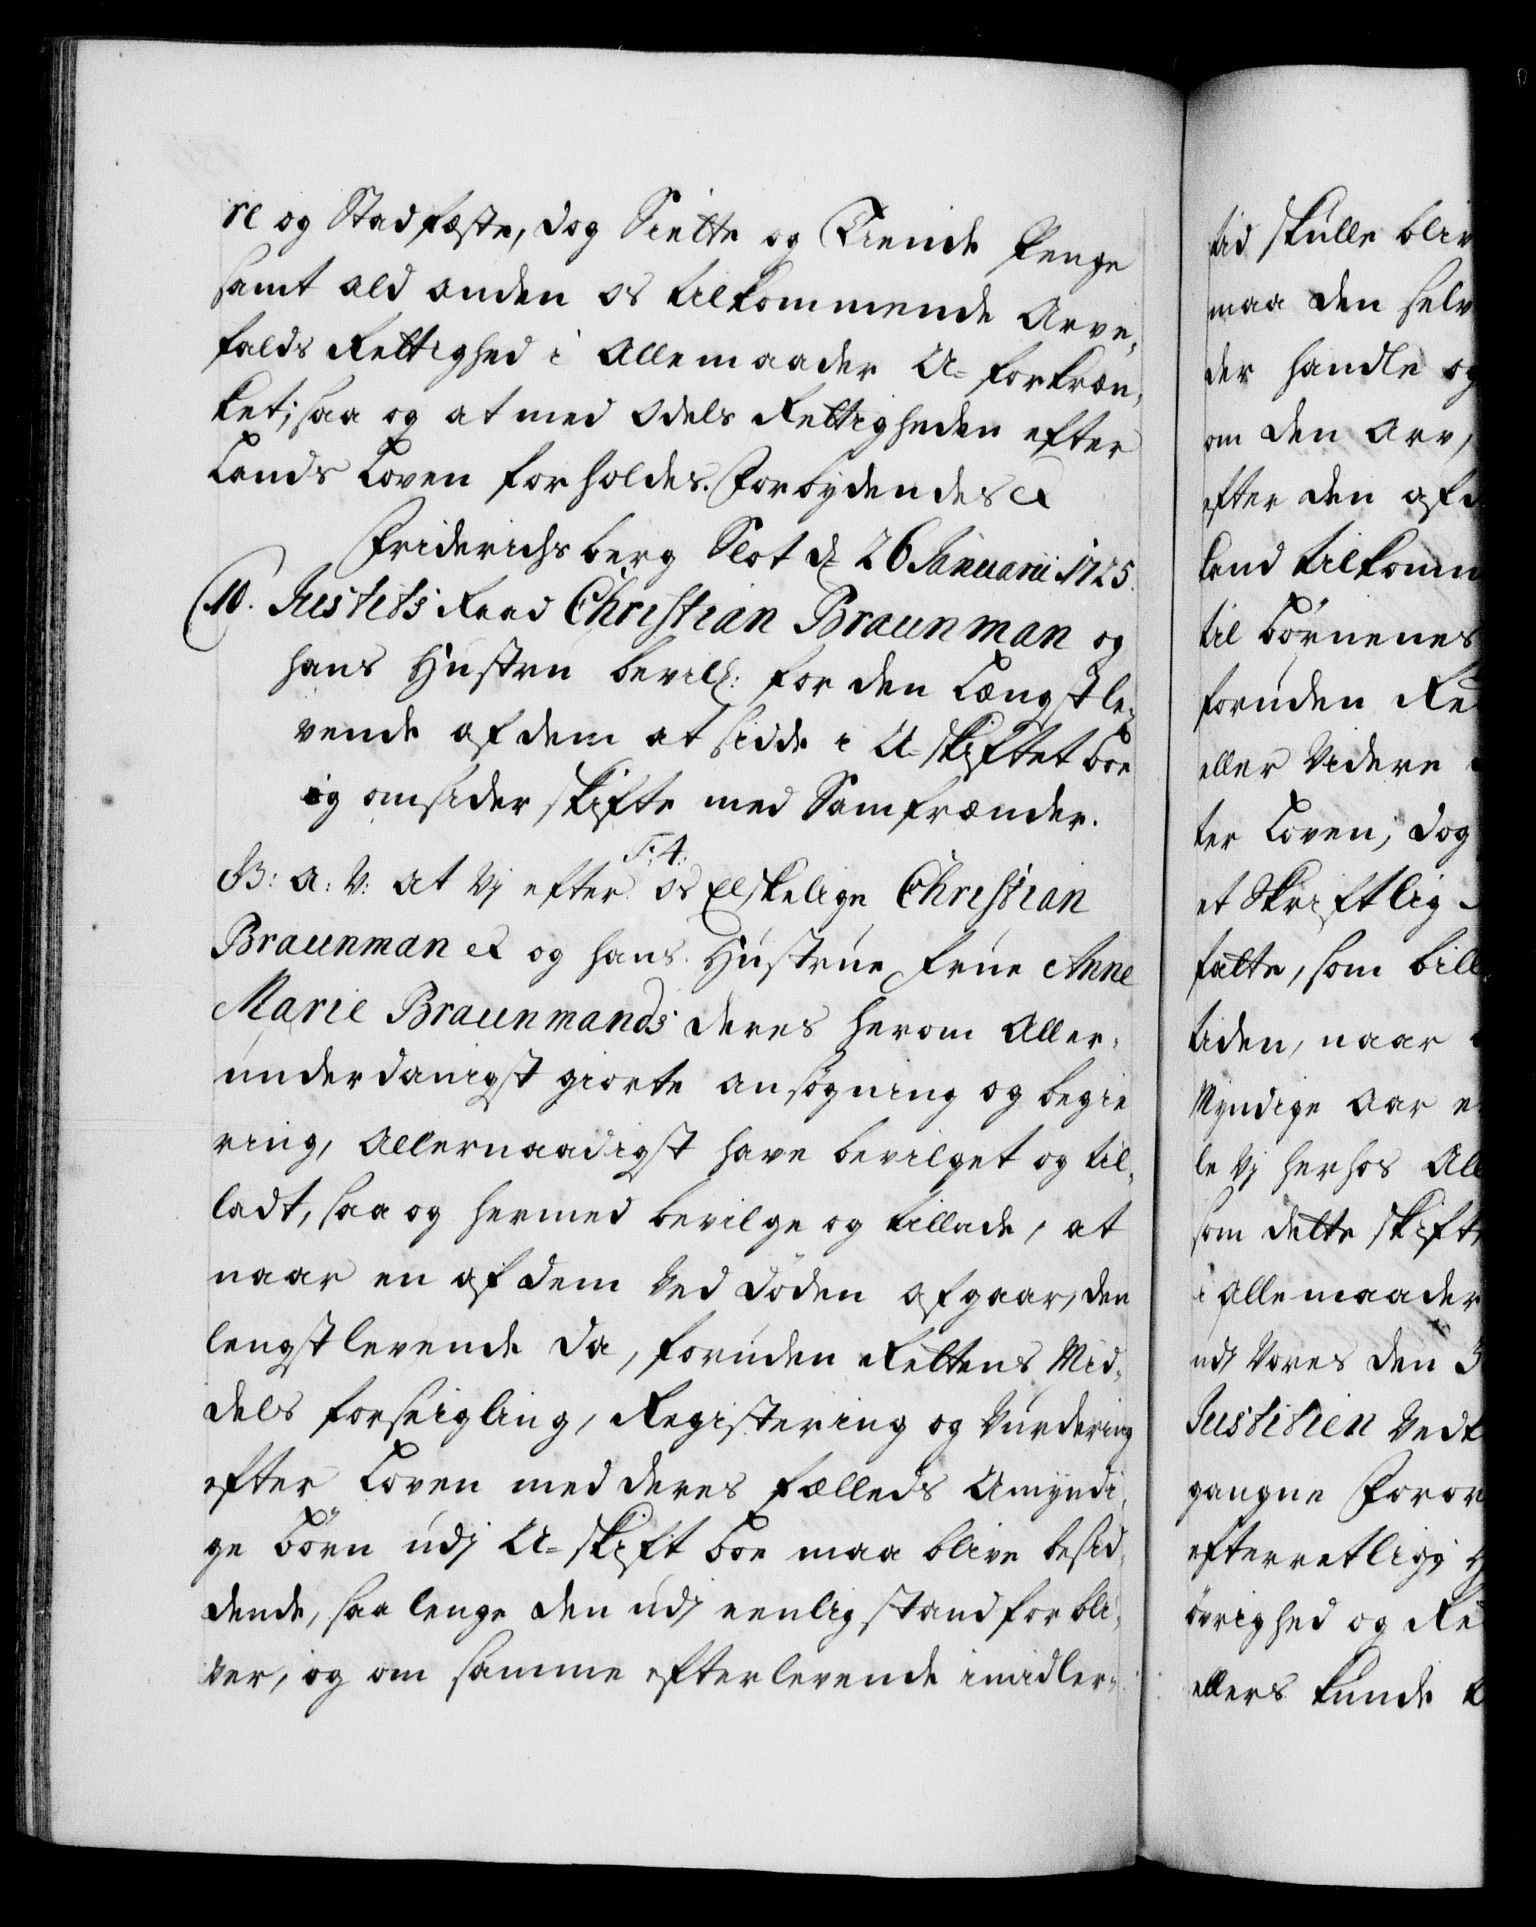 re og Stadfæste, dog Siette og Tiende Penge
samt ald anden os tilkommende Arve-
falds Rettighed i Allemaader U-forkræn-
ket; saa og at med Odels Rettigheden efter
Lands Loven forholdes. Forbydendes &
Friderichsberg Slot d. 26 Januarii 1725.
10. Justits Raad Christian Braunman og
hans Hustru bevilg: for den Længstle-
vende af dem at sidde i U-skiftet boe
og omsider skifte med Samfrænder.
F: 4:
G B: A: V: At Vj efter os Elskelige Christian
Braunman & og hans Hustrue Frue Anne
Marie Braunmands deres herom Aller-
underdanigst giorte ansøgning og begie
ring, Allernaadigst have bevilget og til-
ladt, saa og hermed bevilge og tillade, at
naar en af dem Ved døden afgaar, den
lengstlevende da, foruden Rettens Mid-
dels forseigling, Registering og Vurdering
efter Loven med deres fælleds Umyndi-
ge Börn udj U-skift boe maa blive besid-
dende, saa lenge den udj eenlig stand forbli-
ver, og om samme efterlevende imidler-
tid skulle bliv
maa den selv
der handle og
om den Arv,
efter den afd
kand tilkomm
til Börnenes
foruden Re
eller Videre
ter Loven; dog
et Skriftlig
fatte, som bill
tiden, naar
Myndige Aar e
le Vj herhos All
som dette skift
i Allemaader
udj Vores den 3
Justitien Vedk
gangne Foror
efterretlig; H
övrighed og Re
ellers kunde k